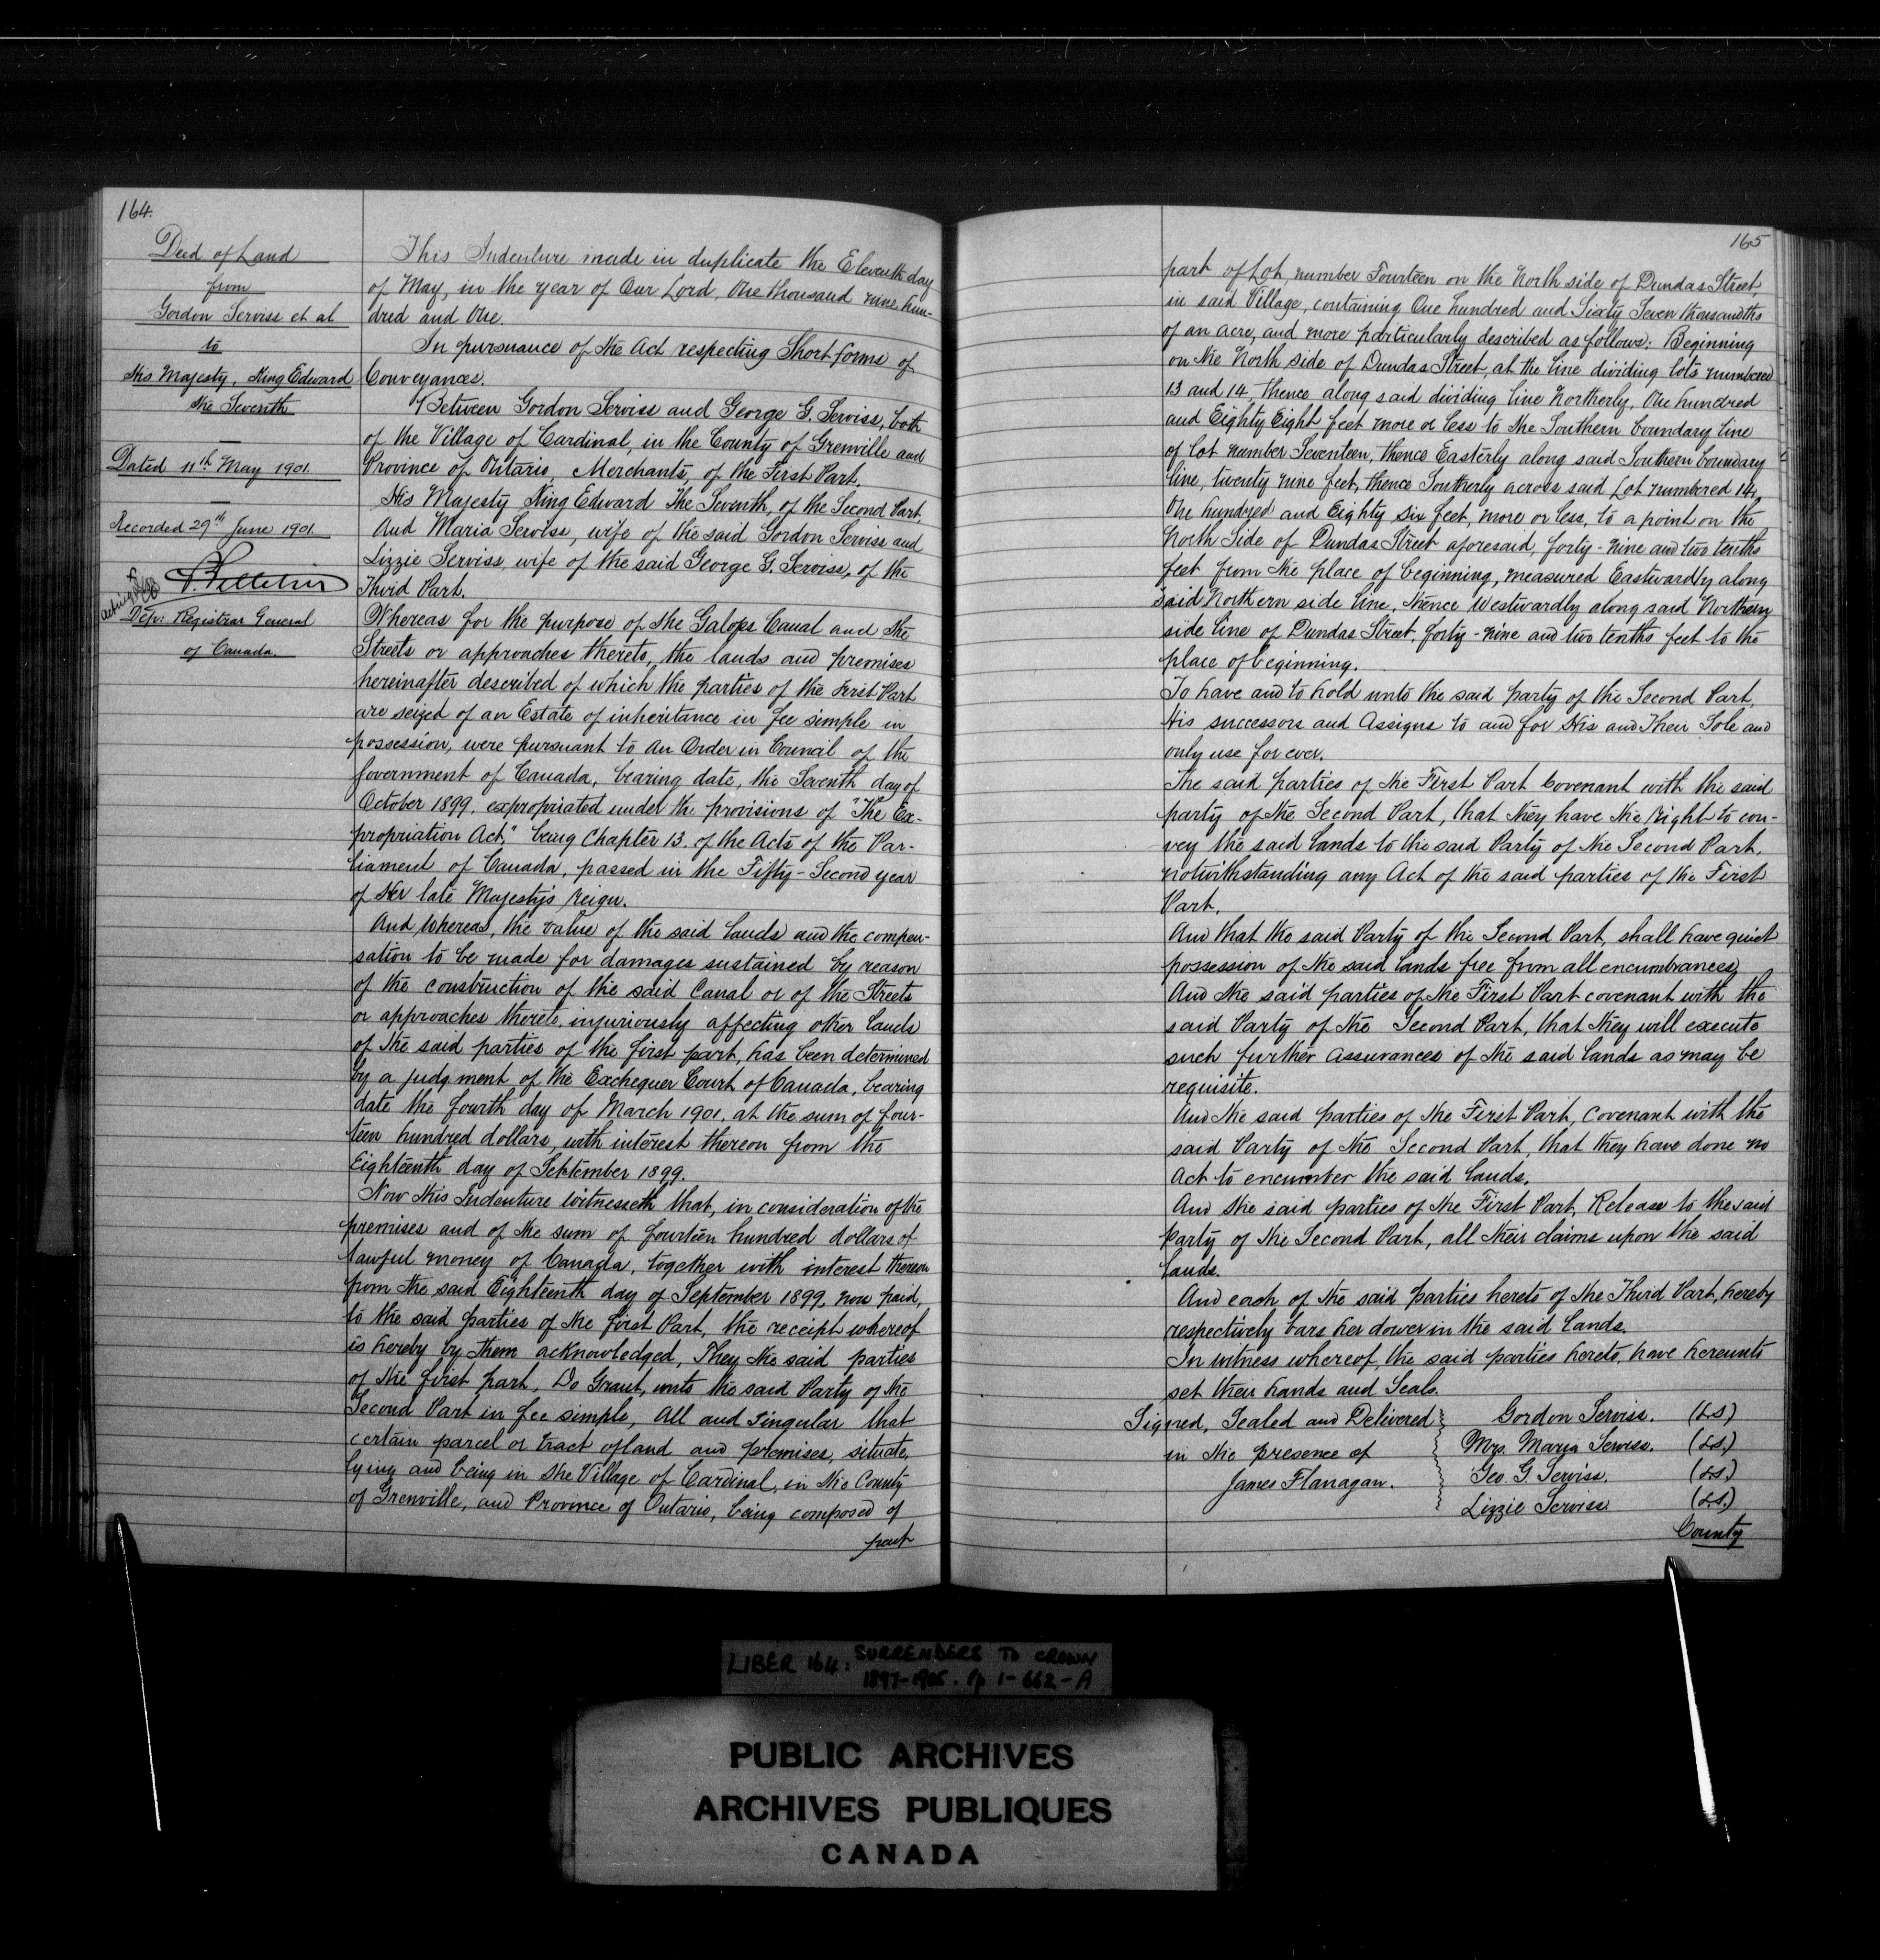 164.
Deed of Land
from
Gordon Serviss et al
to
His Majesty, King Edward
the Seventh
Dated 11th May 1901.
Recorded 29th June 1901.
P. Pelletier
Acting
Dep: Registrar General
of Canada.
This Indenture made in duplicate the Eleventh day
of May, in the year of Our Lord, One thousand nine hun-
dred and One.
In pursuance of the Act respecting Short forms of
Conveyances.
Between Gordon Serviss and George G. Serviss, both
of the Village of Cardinal, in the County of Grenville and
Province of Ontario, Merchants, of the First Part.
His Majesty King Edward The Seventh, of the Second Part.
And Maria Serviss, wife of the said Gordon Serviss and
Lizzie Serviss, wife of the said George G. Serviss, of the
Third Part.
Whereas for the purpose of the Galops Canal and the
Streets or approaches thereto, the lands and premises
hereinafter described of which the parties of the First Part
are seized of an Estate of inheritance in fee simple in
possession, were pursuant to an Order in Council of the
Government of Canada, bearing date, the Seventh day of
October 1899, expropriated under the provisions of "The Ex-
propriation Act," being Chapter 13. of the Acts of the Par-
liament of Canada, passed in the Fifty-Second year
of Her late Majesty's reign.
And Whereas, the value of the said lands and the compen-
sation to be made for damages sustained by reason
of the construction of the said Canal or of the Streets
or approaches thereto, injuriously affecting other lands
of the said parties of the first part, has been determined
by a judgment of the Exchequer Court of Canada, bearing
date the fourth day of March 1901, at the sum of four-
teen hundred dollars, with interest thereon from the
Eighteenth day of September 1899.
Now this Indenture witnesseth that, in consideration of the
premises and of the sum of fourteen hundred dollars of
lawful money of Canada, together with interest thereon
from the said Eighteenth day of September 1899, now paid,
to the said parties of the first Part, the receipt whereof
is hereby by them acknowledged, They the said parties
of the first part, Do Grant, unto the said Party of the
Second Part in fee simple, All and Singular that
certain parcel or tract of land and premises, situate,
lying and being in the Village of Cardinal, in the County
of Grenville, and Province of Ontario, being composed of
part
165
part of Lot, number Fourteen on the North side of Dundas Street,
in said Village, containing One hundred and Sixty Seven thousandths
of an acre, and more particularly described as follows: Beginning
on the North side of Dundas Street, at the line dividing lots numbered
13 and 14, thence along said dividing line Northerly, One hundred
and Eighty Eight feet more or less to the Southern boundary line
of Lot number Seventeen, thence Easterly along said Southern boundary
line, twenty nine feet, thence Southerly across said Lot numbered 14,
One hundred and Eighty Six feet, more or less, to a point on the
North Side of Dundas Street aforesaid, forty-nine and two tenths
feet from the place of beginning, measured Eastwardly along
said Northern side line, thence Westwardly along said Northern
side line of Dundas Street, forty-nine and two tenths feet to the
place of beginning.
To have and to hold unto the said party of the Second Part,
His successors and Assigns to and for His and Their Sole and
only use for ever.
The said parties of the First Part Covenant with the said
party of the Second Part, that they have the right to con-
vey the said lands to the said Party of the Second Part,
notwithstanding any Act of the said parties of the First
Part.
And that the said Party of the Second Part, shall have quiet
possession of the said lands free from all encumbrances,
And the said parties of the First Part covenant with the
said Party of the Second Part, that they will execute
such further assurances of the said lands as may be
requisite.
And the said parties of the First Part, covenant with the
said Party of the Second Part, that they have done no
Act to encumber the said lands.
And the said parties of the First Part, Release to the said
party of the Second Part, all their claims upon the said
lands.
And each of the said parties hereto of the Third Part, hereby
respectively bars her dower in the said lands.
In witness whereof, the said parties hereto, have hereunto
set their hands and Seals.
Signed, Sealed and Delivered Gordon Serviss. (L.S)
in the presence of Mrs. Maria Serviss. (L.S.)
James Flanagan. Geo. G Serviss. (L.S.)
Lizzie Serviss (L.S.)
County
LIBER 164: SURRENDERS TO CROWN
1897-1905. Pp 1-662-A
PUBLIC ARCHIVES
ARCHIVES PUBLIQUES
CANADA